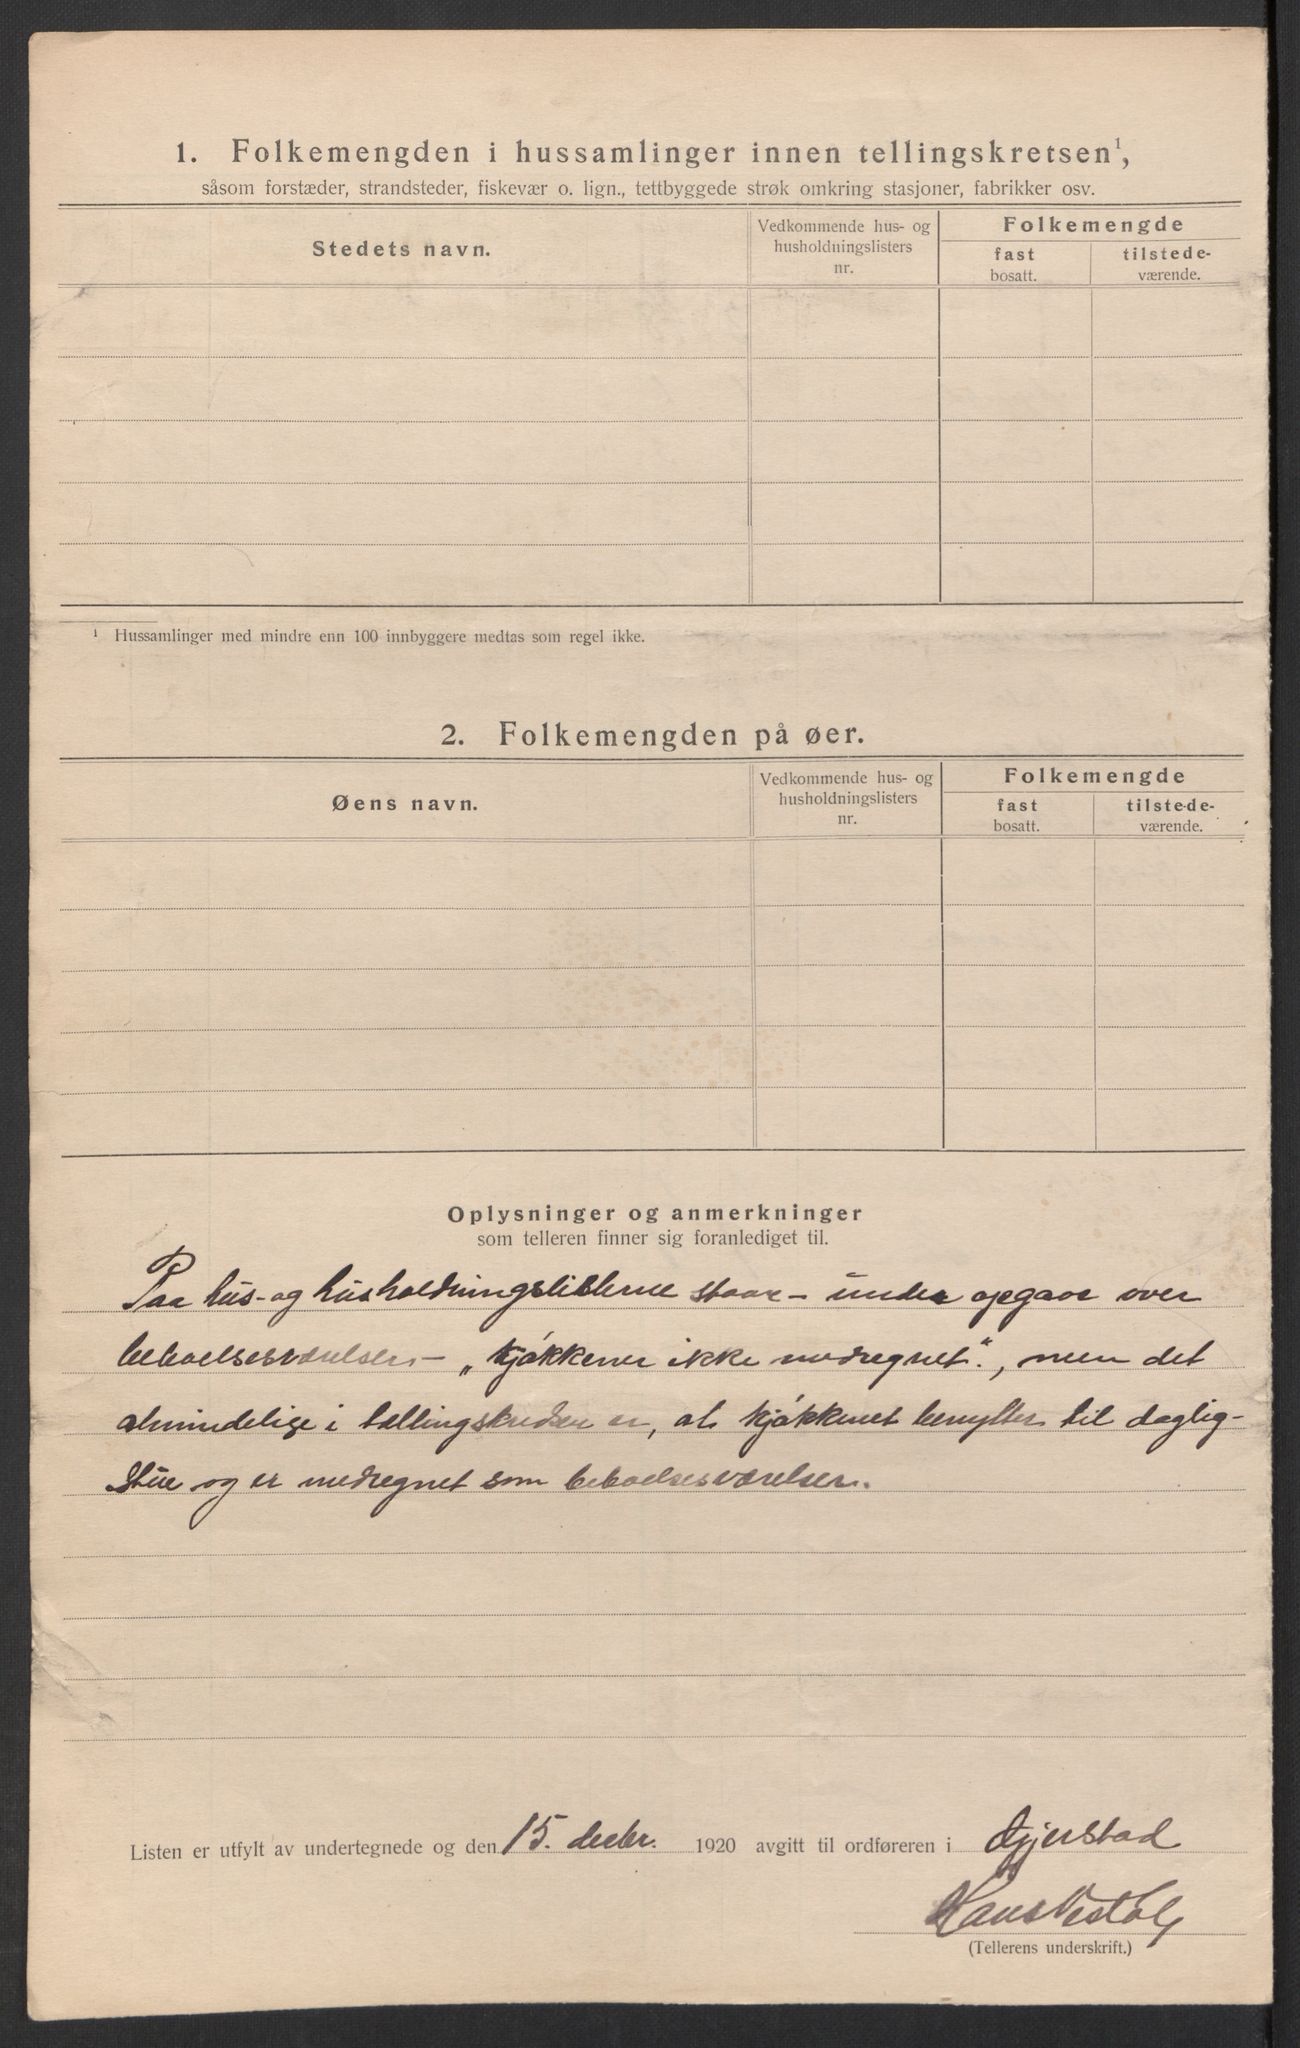 1. Folkemengden i hussamlinger innen tellingskretsen¹,
såsom forstæder, strandsteder, fiskevær o. lign., tettbyggede strøk omkring stasjoner, fabrikker osv.
Stedets navn.
Vedkommende hus- og
husholdningslisters
nr.
Folkemengde
fast
bosatt.
tilstede-
værende.
¹ Hussamlinger med mindre enn 100 innbyggere medtas som regel ikke.
2. Folkemengden på øer.
Øens navn.
Vedkommende hus- og
husholdningslisters
nr.
Folkemengde
fast
bosatt.
tilstede-
værende.
Oplysninger og anmerkninger
som telleren finner sig foranlediget til.
Paa hus- og husholdningslisterne staar - under opgave over
beboelsesværelser - „kjøkkener ikke medregnet“, men det
almindelige i tællingskredsen er, at kjøkkenet benyttes til daglig-
stue og er medregnet som beboelsesværelser.
Listen er utfylt av undertegnede og den 15. decbr. 1920 avgitt til ordføreren i Gjerstad
Hans Vestøl
(Tellerens underskrift.)